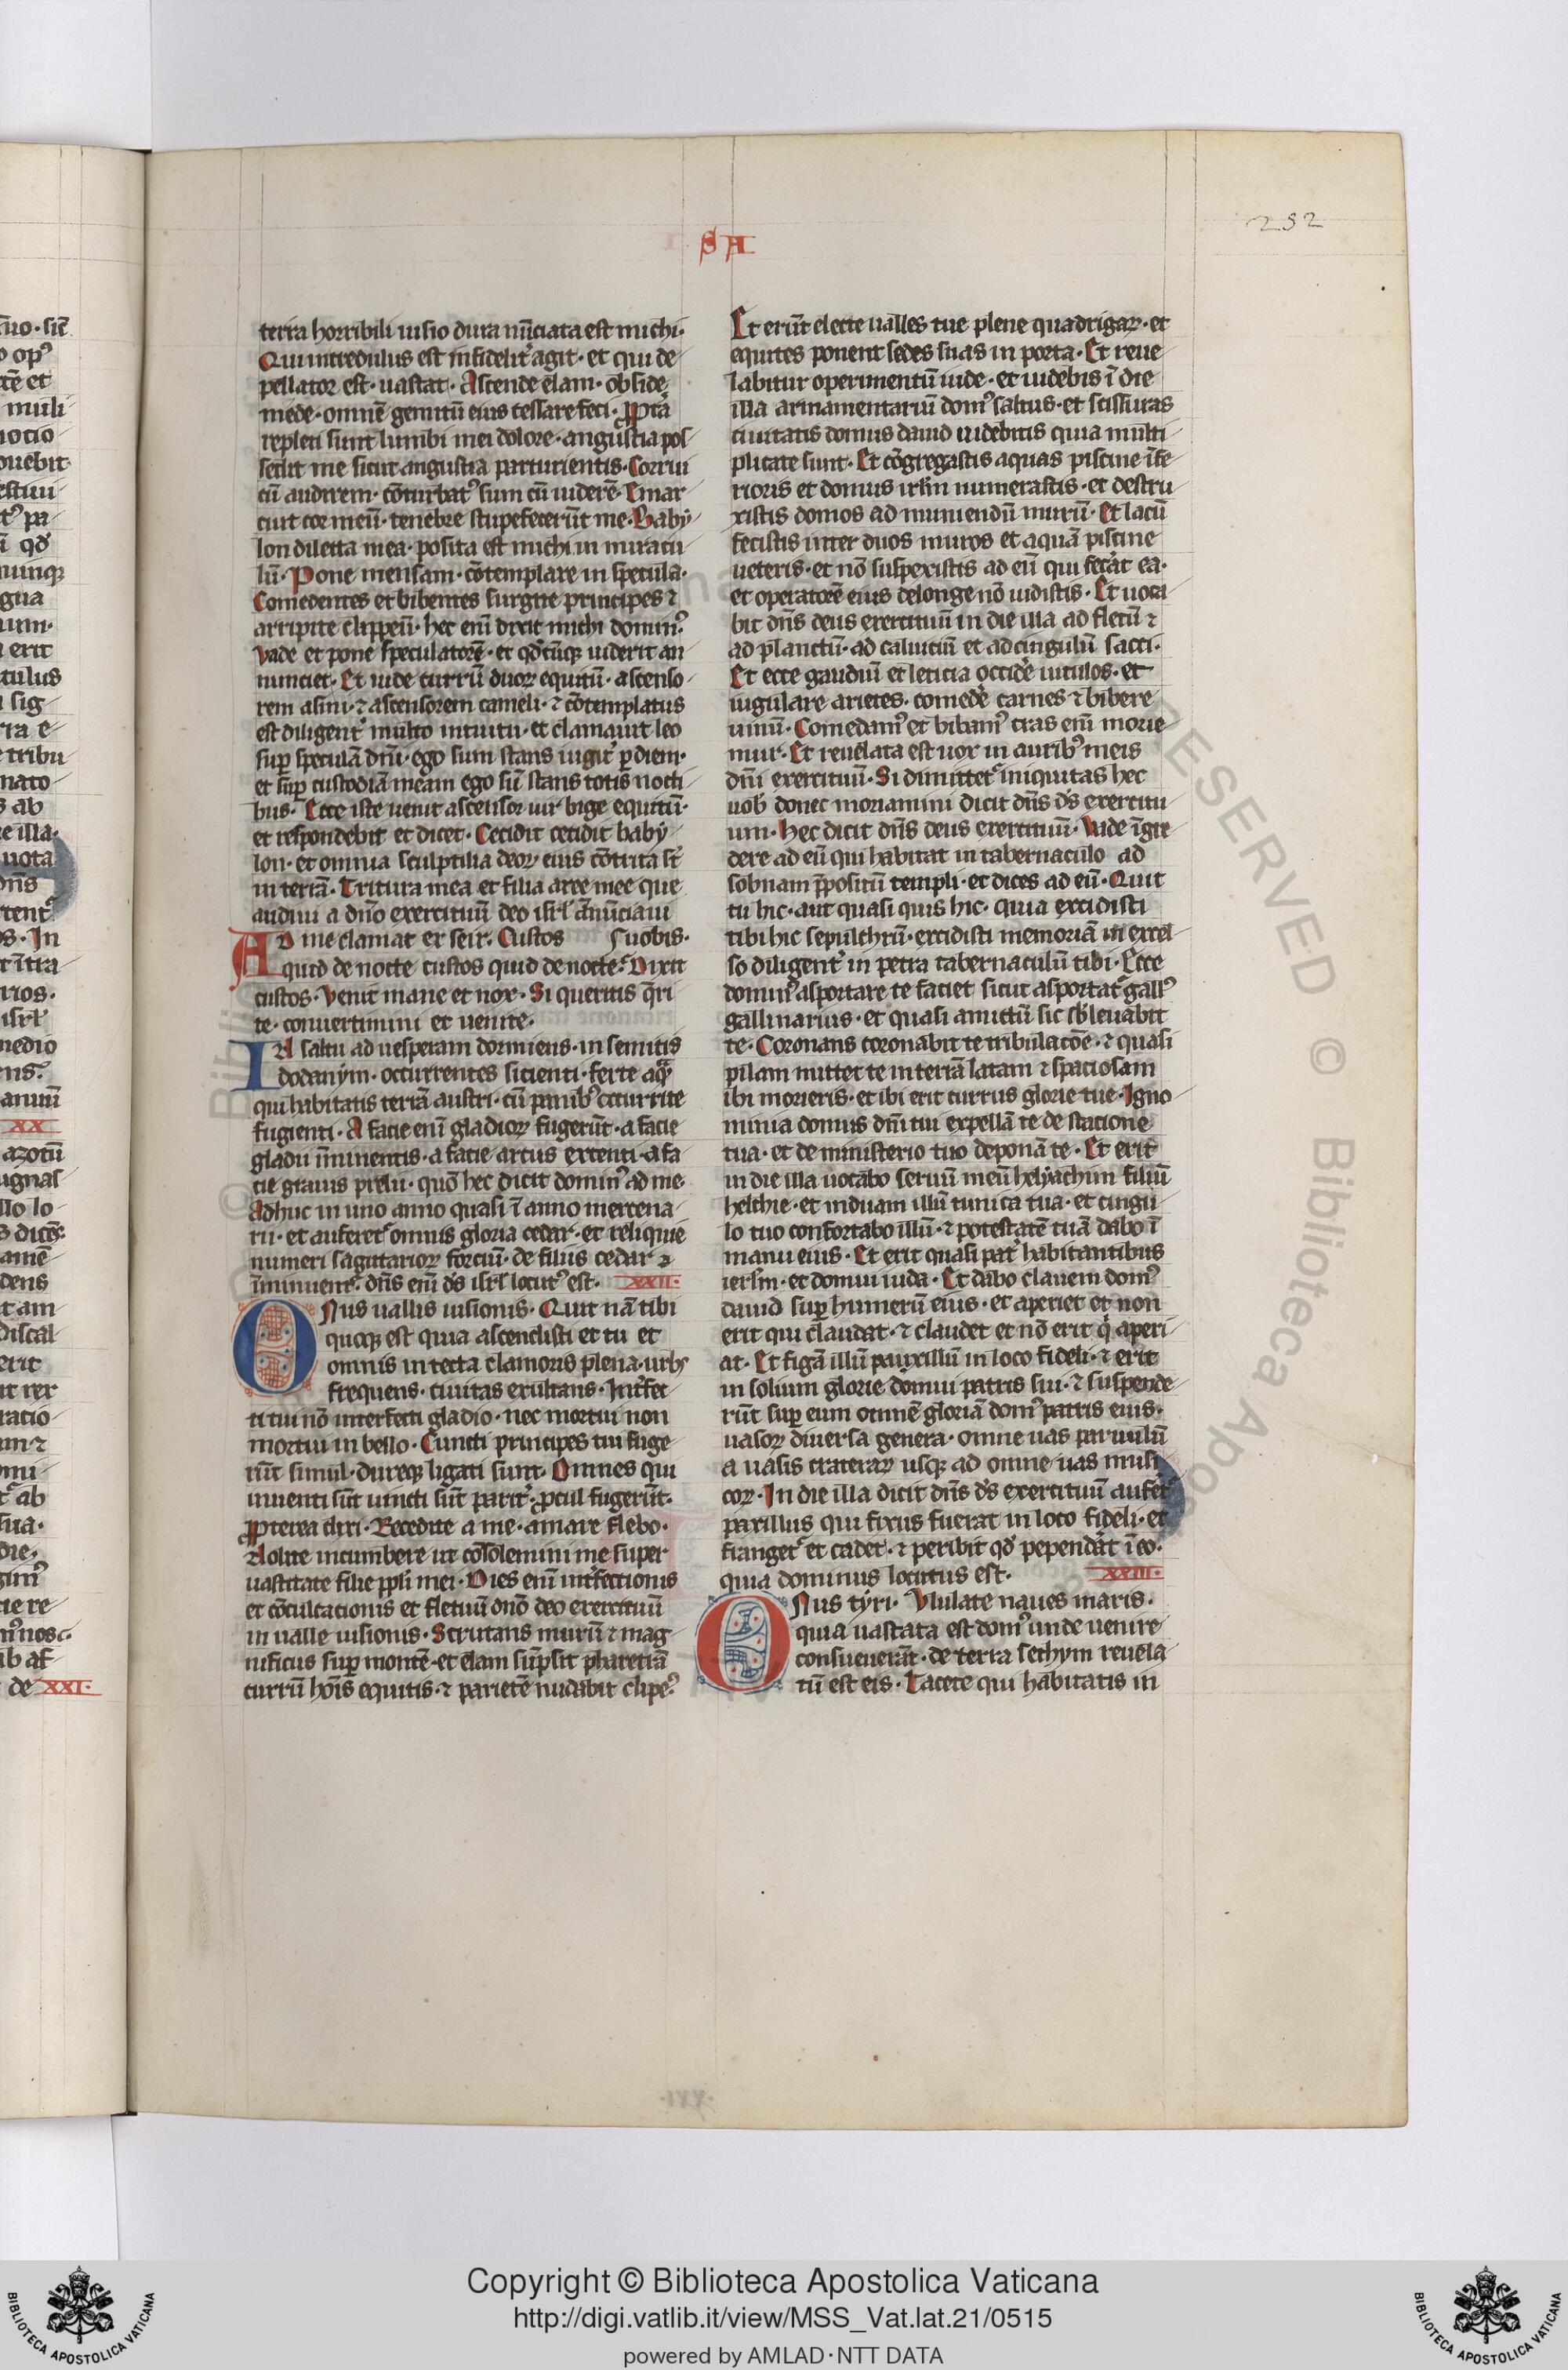 SA
252
terra horribili uisio dura nūciata est michi·
Qui incredulus est infidelit̾ agit· et qui de
pellator est· uastat· Ascende elam· obside
mede· omnē gemitū eius cessare feci· Ꝓpt̾a
repleti sunt lumbi mei dolore· angustia pos
sedit me sicut angustia parturientis· Corrui
cū audirem· cōturbat᷒ sum cū uiderē· Emar
cuit cor meū· tenebre stupefecerūt me· Baby
lon dilecta mea· posita est michi in miracu
lū· Pone mensam· cōtemplare in specula·
Comedentes et bibentes surgite principes ⁊
arripite clippeū· hec enī dixit michi domin᷒·
Vade et pone speculatorē· et qd̾cūqꝫ uiderit an
nunciet· Et uide currū duoꝝ equitū· ascenso
rem asini· ⁊ ascensorem cameli· ⁊ cōtemplatus
est diligent̾ multo intuitu· et clamauit leo
suꝑ speculā dn̄i· ego sum stans iugit̾ ꝑ diem·
et suꝑ custodiā meam ego sū stans totis nocti
bus· Ecce iste uenit ascensor uir bige equitū·
et respondebit et dicet· Cecidit cecidit baby
lon· et omnia sculptilia deoꝝ eius cōtrita st̄
in terrā· Tritura mea et filia aree mee que
audiui a dn̄o exercituū deo isrl̾ ānūciaui
AD me clamat ex seir· Custos uobis·
quid de nocte custos quid de nocte· Dixit
custos· Venit mane et nox· Si queritis q̄ri
te· conuertimini et uenite·
IN saltu ad uesperam dormiens· in semitis
dodanym· occurrentes sicienti· ferte aquā
qui habitatis terrā austri· cū panib᷒ occurrite
fugienti· A facie enī gladioꝝ fugerūt· a facie
gladii īminentis· a facie arcus extenti· a fa
cie grauis prelii· quō hec dicit domin᷒ ad me·
Adhuc in uno anno quasi ī anno mercena
rii· et auferet᷒ omnis gloria cedar· et reliquie
numeri sagittarioꝝ forciū· de filiis cedar
īminuent᷒· dn̄s enī ds̄ isrl̾ locut᷒ est· XXII·
ONus uallis uisionis· Quit nā tibi
quoqꝫ est quia ascendisti et tu et
omnis in tecta clamoris plena· urbs
frequens· ciuitas exultans· Int̾fec
ti tui nō interfecti gladio· nec mortui non
mortui in bello· Cuncti principes tui fuge
rūt simul· dureqꝫ ligati sunt· Omnes qui
inuenti sūt uincti sūt parit̾· ꝓcul fugerūt·
Ꝓpterea dixi· Recedite a me· amare flebo·
Nolite incumbere ut cōsolemini me super
uastitate filie ppl̄i mei· Dies enī int̾fectionis
et cōculcationis et fletuū dn̄o deo exercituū
in ualle uisionis· Scrutans murū ⁊ mag
nificus suꝑ montē· et elam sūpsit pharetrā
currū hōis equitis· ⁊ parietē nudabit clipe᷒·
Et erūt electe ualles tue plene quadrigaꝝ· et
equites ponent sedes suas in porta· Et reue
labitur operimentū iude· et uidebis ī die
illa armamentariū dom᷒ saltus· et scissuras
ciuitatis domus dauid uidebitis quia multi
plicate sunt· Et cōgregastis aquas piscine īfe
rioris et domus irlm̄ numerastis· et destru
xistis domos ad muniendū murū· Et lacū
fecistis inter duos muros et aquā piscine
ueteris· et nō suspexistis ad eū qui fec̾at ea·
et operatorē eius de longe nō uidistis· Et uoca
bit dn̄s deus exercituū in die illa ad fletū ⁊
ad planctū· ad caluitiū et ad cingulū sacci·
Et ecce gaudiū et leticia occid̾e uitulos· et
iugulare arietes· comed̾e carnes ⁊ bibere
uinū· Comedam᷒ et bibam᷒ cras enī morie
mur· Et reuelata est uox in aurib᷒ meis
dn̄i exercituū· Si dimittet᷒ iniquitas hec
uob̄ donec moriamini dicit dn̄s ds̄ exercitu
um· Hec dicit dn̄s deus exercituū· Vade īgre
dere ad eū qui habitat in tabernaculo ad
sobnam p̄positū templi· et dices ad eū· Quit
tu hic· aut quasi quis hic· quia excidisti
tibi hic sepulchrū· excidisti memoriā in excel
so diligent̾ in petra tabernaculū tibi· Ecce
domin᷒ asportare te faciet sicut asportat᷒ gall᷒
gallinarius· et quasi amictū sic sb̾leuabit
te· Coronans coronabit te tribulacōe· ⁊ quasi
pilam mittet te in terrā latam ⁊ spaciosam
ibi morieris· et ibi erit currus glorie tue· Igno
minia domus dn̄i tui expellā te de statione
tua· et de ministerio tuo deponā te· Et erit
in die illa uocabo seruū meū helyachim filiū
helchie· et induam illū tunica tua· et cingu
lo tuo confortabo illū· ⁊ potestatē tuā dabo ī
manu eius· Et erit quasi pat̾ habitantibus
ierlm̄· et domui iuda· Et dabo clauem dom᷒
dauid suꝑ humerū eius· et aperiet et non
erit qui claudat· ⁊ claudet et nō erit q̇ aperi
at· Et figā illū paxillū in loco fideli· ⁊ erit
in solium glorie domui patris sui· ⁊ suspende
rūt suꝑ eum omnē gloriā dom᷒ patris eius·
uasoꝝ diuersa genera· omne uas paruulū
a uasis crateraꝝ usqꝫ ad omne uas musi
coꝝ· In die illa dicit dn̄s ds̄ exercituū aufer̾
paxillus qui fixus fuerat in loco fideli· et
franget᷒ et cadet· ⁊ peribit qd̾ pepend̾at ī eo·
quia dominus locutus est· XXIII·
ONus tyri· Vlulate naues maris·
quia uastata est dom᷒ unde uenire
consueuerāt· de terra sethym reuela
tū est eis· Tacete qui habitatis in
Copyright © Biblioteca Apostolica Vaticana
http://digi.vatlib.it/view/MSS_Vat.lat.21/0515
powered by AMLAD·NTT DATA